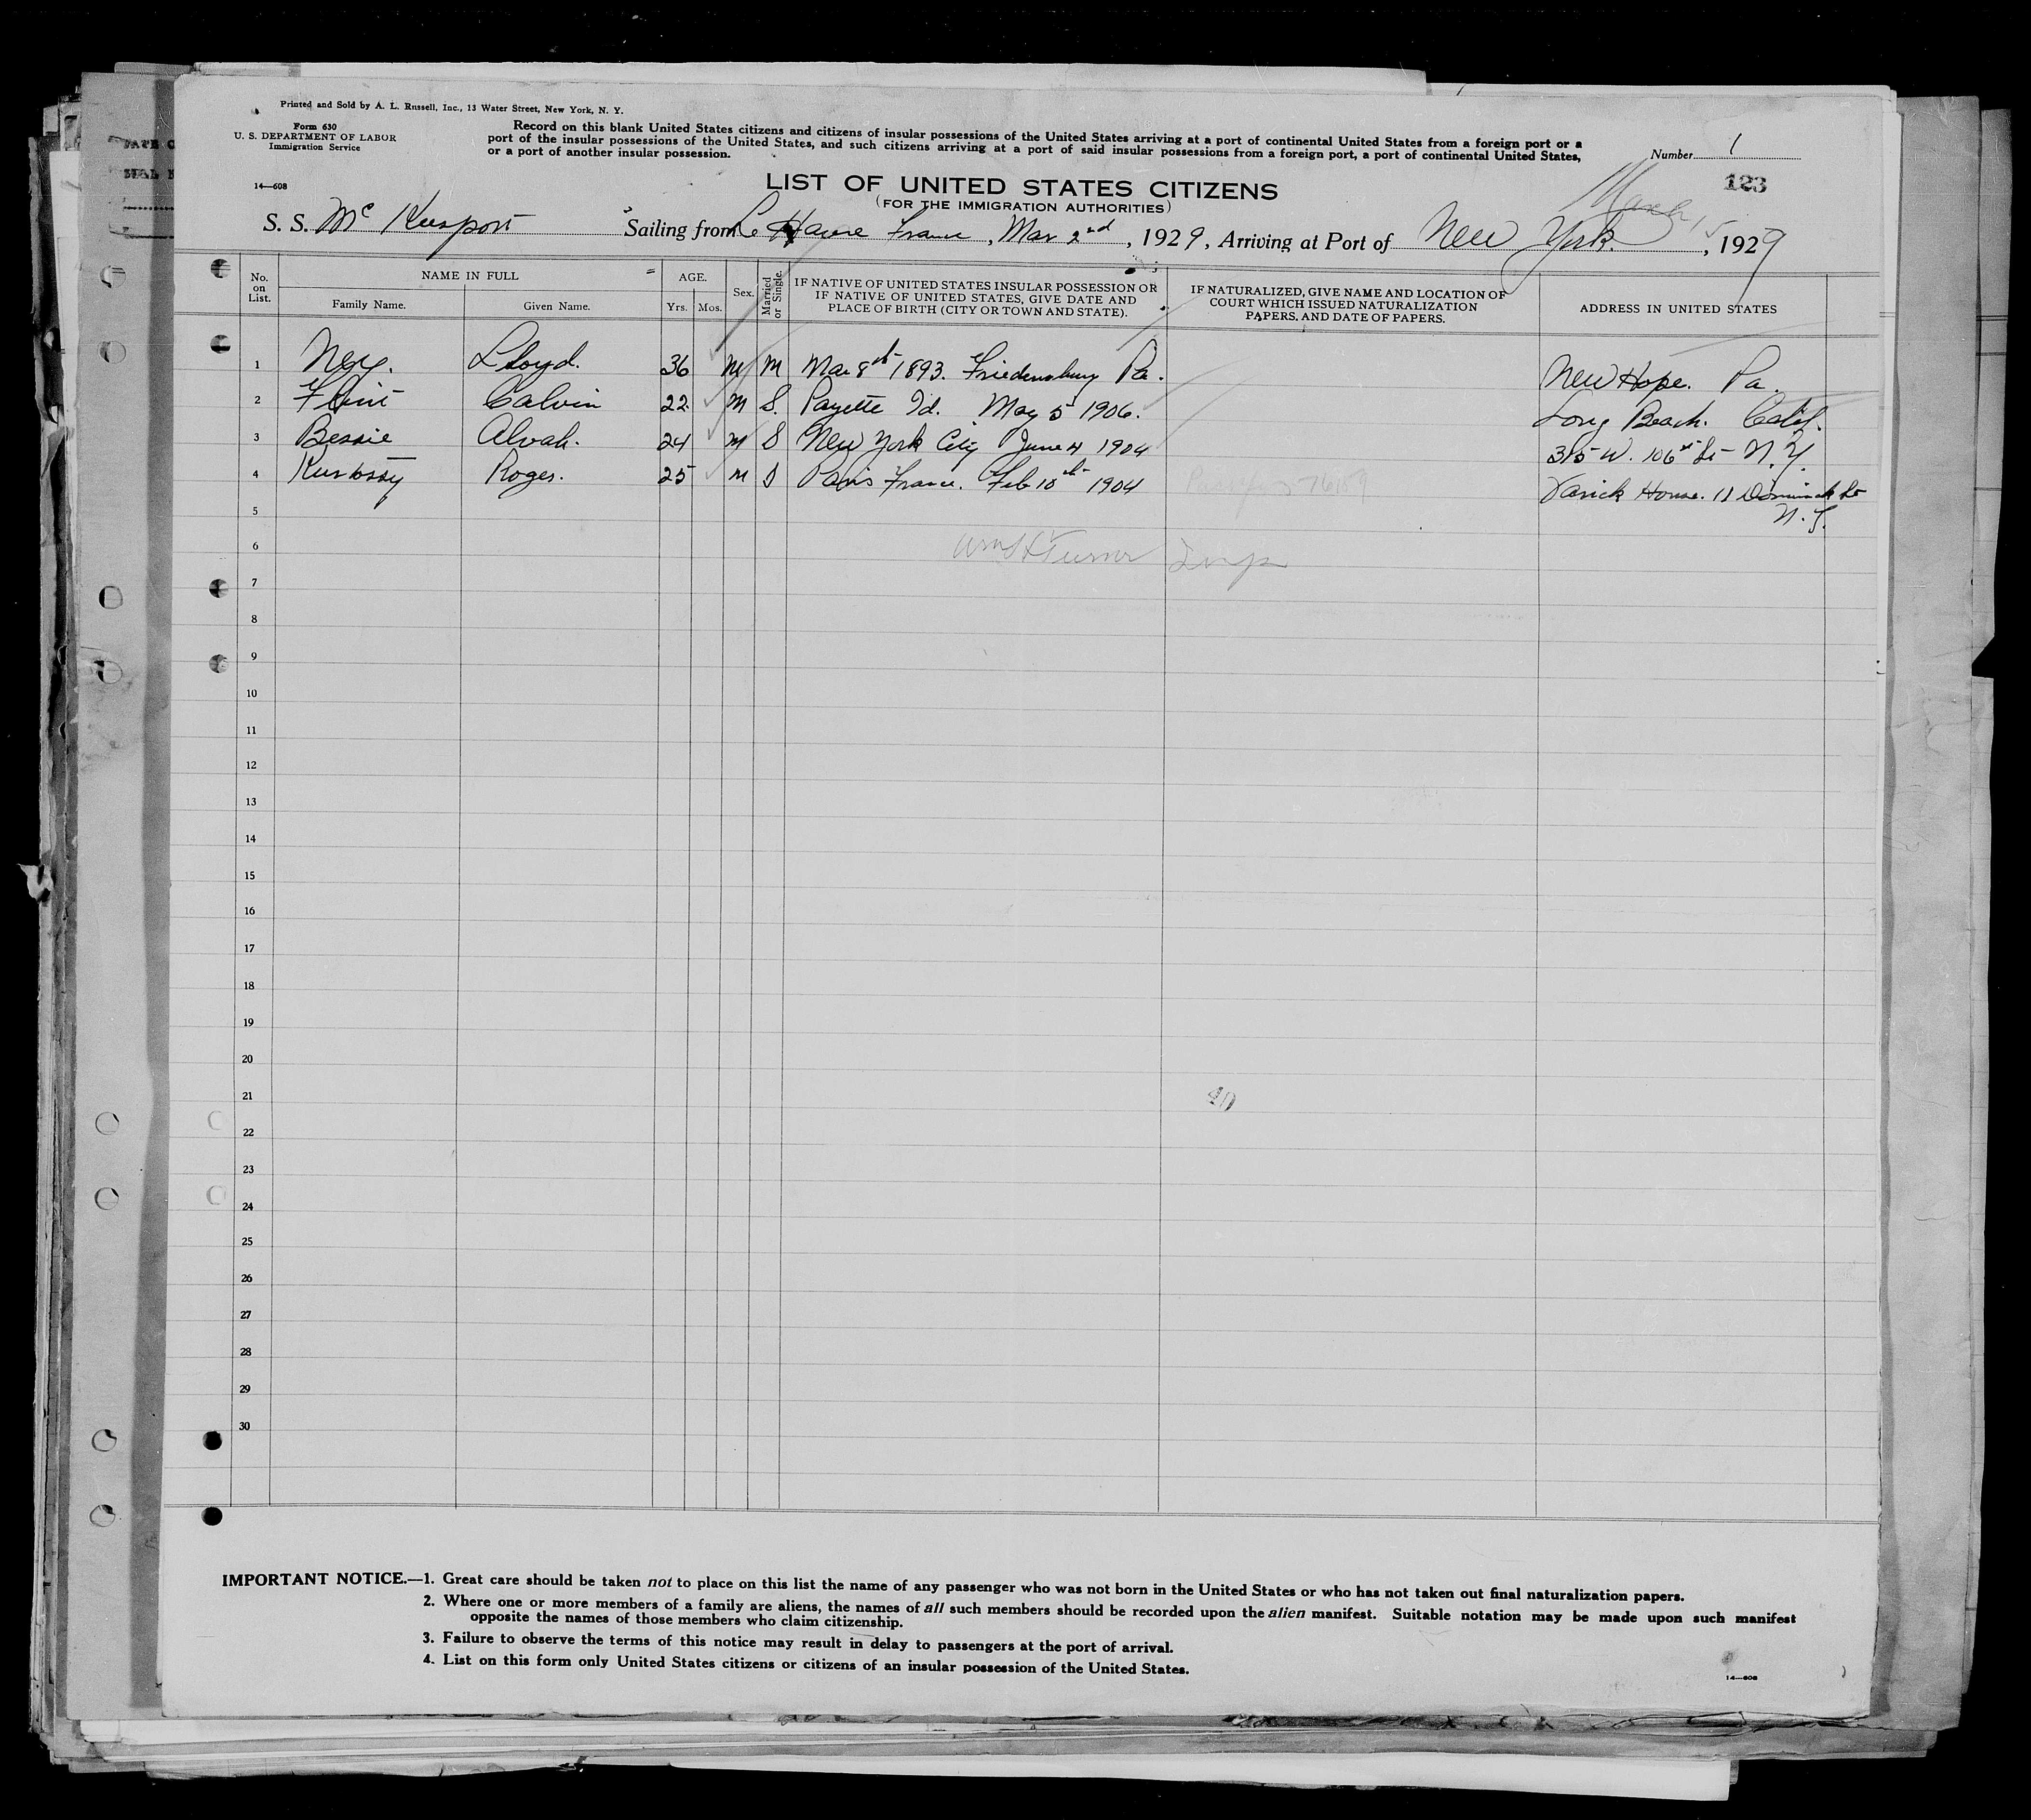 Printed and Sold by A. L. Russell, Inc., 13 Water Street, New York, N. Y.
Form 630
U. S. DEPARTMENT OF LABOR
Immigration Service
Record on this blank United States citizens and citizens of insular possessions of the United States arriving at a port of continental United States from a foreign port or a
port of the insular possessions of the United States, and such citizens arriving at a port of said insular possessions from a foreign port, a port of continental United States,
or a port of another insular possession.
Number 1
14—608
123
LIST OF UNITED STATES CITIZENS
(FOR THE IMMIGRATION AUTHORITIES)
S. S. Mc Keesport Sailing from Le Havre France, Mar 2nd, 1929, Arriving at Port of New York March 15, 1929
No. on List. NAME IN FULL AGE. Sex. Married or Single. IF NATIVE OF UNITED STATES INSULAR POSSESSION OR IF NATIVE OF UNITED STATES, GIVE DATE AND PLACE OF BIRTH (CITY OR TOWN AND STATE). IF NATURALIZED, GIVE NAME AND LOCATION OF COURT WHICH ISSUED NATURALIZATION PAPERS, AND DATE OF PAPERS. ADDRESS IN UNITED STATES
Family Name. Given Name. Yrs. Mos.
1 Ney. Lloyd. 36 M M Mar 8th 1893. Friedensburg Pa. New Hope. Pa.
2 Flint Calvin 22 M S. Payette Id. May 5 1906. Long Beach. Calif.
3 Bessie Alvah. 24 M S New York City June 4 1904 315 W. 106th St N.Y.
4 Roger. 25 M S Paris France. Feb 10th 1904 Varick House. 11 Dominick St
5 N.Y.
6
7
8
9
10
11
12
13
14
15
16
17
18
19
20
21
22
23
24
25
26
27
28
29
30
IMPORTANT NOTICE.—1. Great care should be taken not to place on this list the name of any passenger who was not born in the United States or who has not taken out final naturalization papers.
2. Where one or more members of a family are aliens, the names of all such members should be recorded upon the alien manifest. Suitable notation may be made upon such manifest
opposite the names of those members who claim citizenship.
3. Failure to observe the terms of this notice may result in delay to passengers at the port of arrival.
4. List on this form only United States citizens or citizens of an insular possession of the United States.
14—608